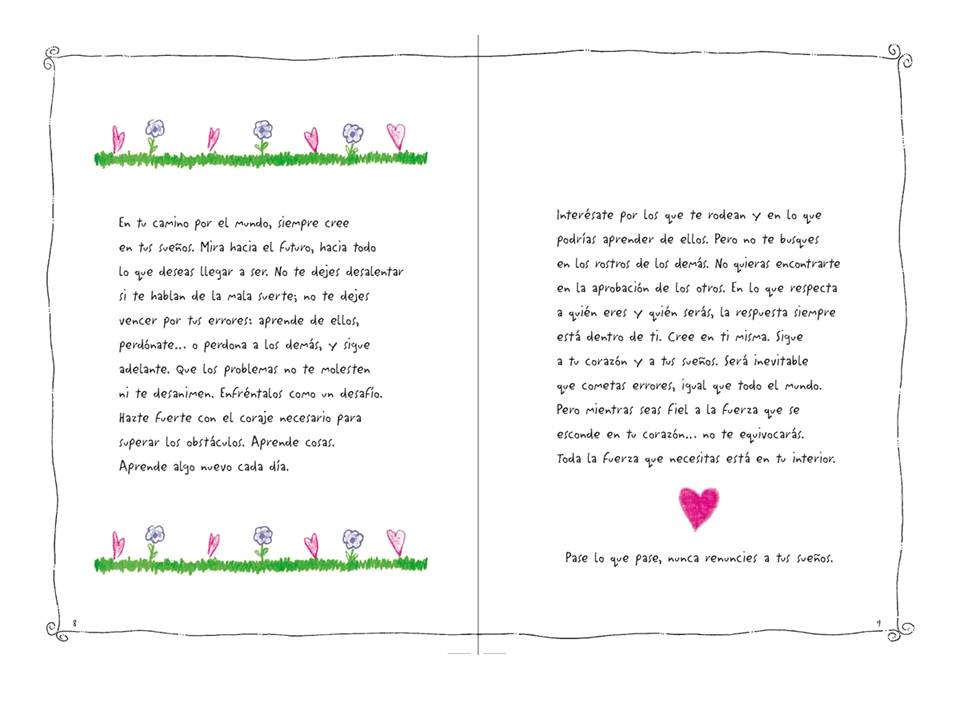 En tu camino por el mundo, siempre cree
en tus sueños. Mira hacia el futuro, hacia todo
lo que deseas llegar a ser. No te dejes desalentar
si te hablan de la mala suerte; no te dejes
vencer por tus errores: aprende de ellos,
perdónate... o perdona a los demás, y sigue
adelante. Que los problemas no te molesten
ni te desanimen. Enfréntalos como un desafío.
Hazte fuerte con el coraje necesario para
superar los obstáculos. Aprende cosas.
Aprende algo nuevo cada día.
8
Interésate por los que te rodean y en lo que
podrías aprender de ellos. Pero no te busques
en los rostros de los demás. No quieras encontrarte
en la aprobación de los otros. En lo que respecta
a quién eres y quién serás, la respuesta siempre
está dentro de ti. Cree en ti misma. Sigue
a tu corazón y a tus sueños. Será inevitable
que cometas errores, igual que todo el mundo.
Pero mientras seas fiel a la fuerza que se
esconde en tu corazón... no te equivocarás.
Toda la fuerza que necesitas está en tu interior.
Pase lo que pase, nunca renuncies a tus sueños.
9